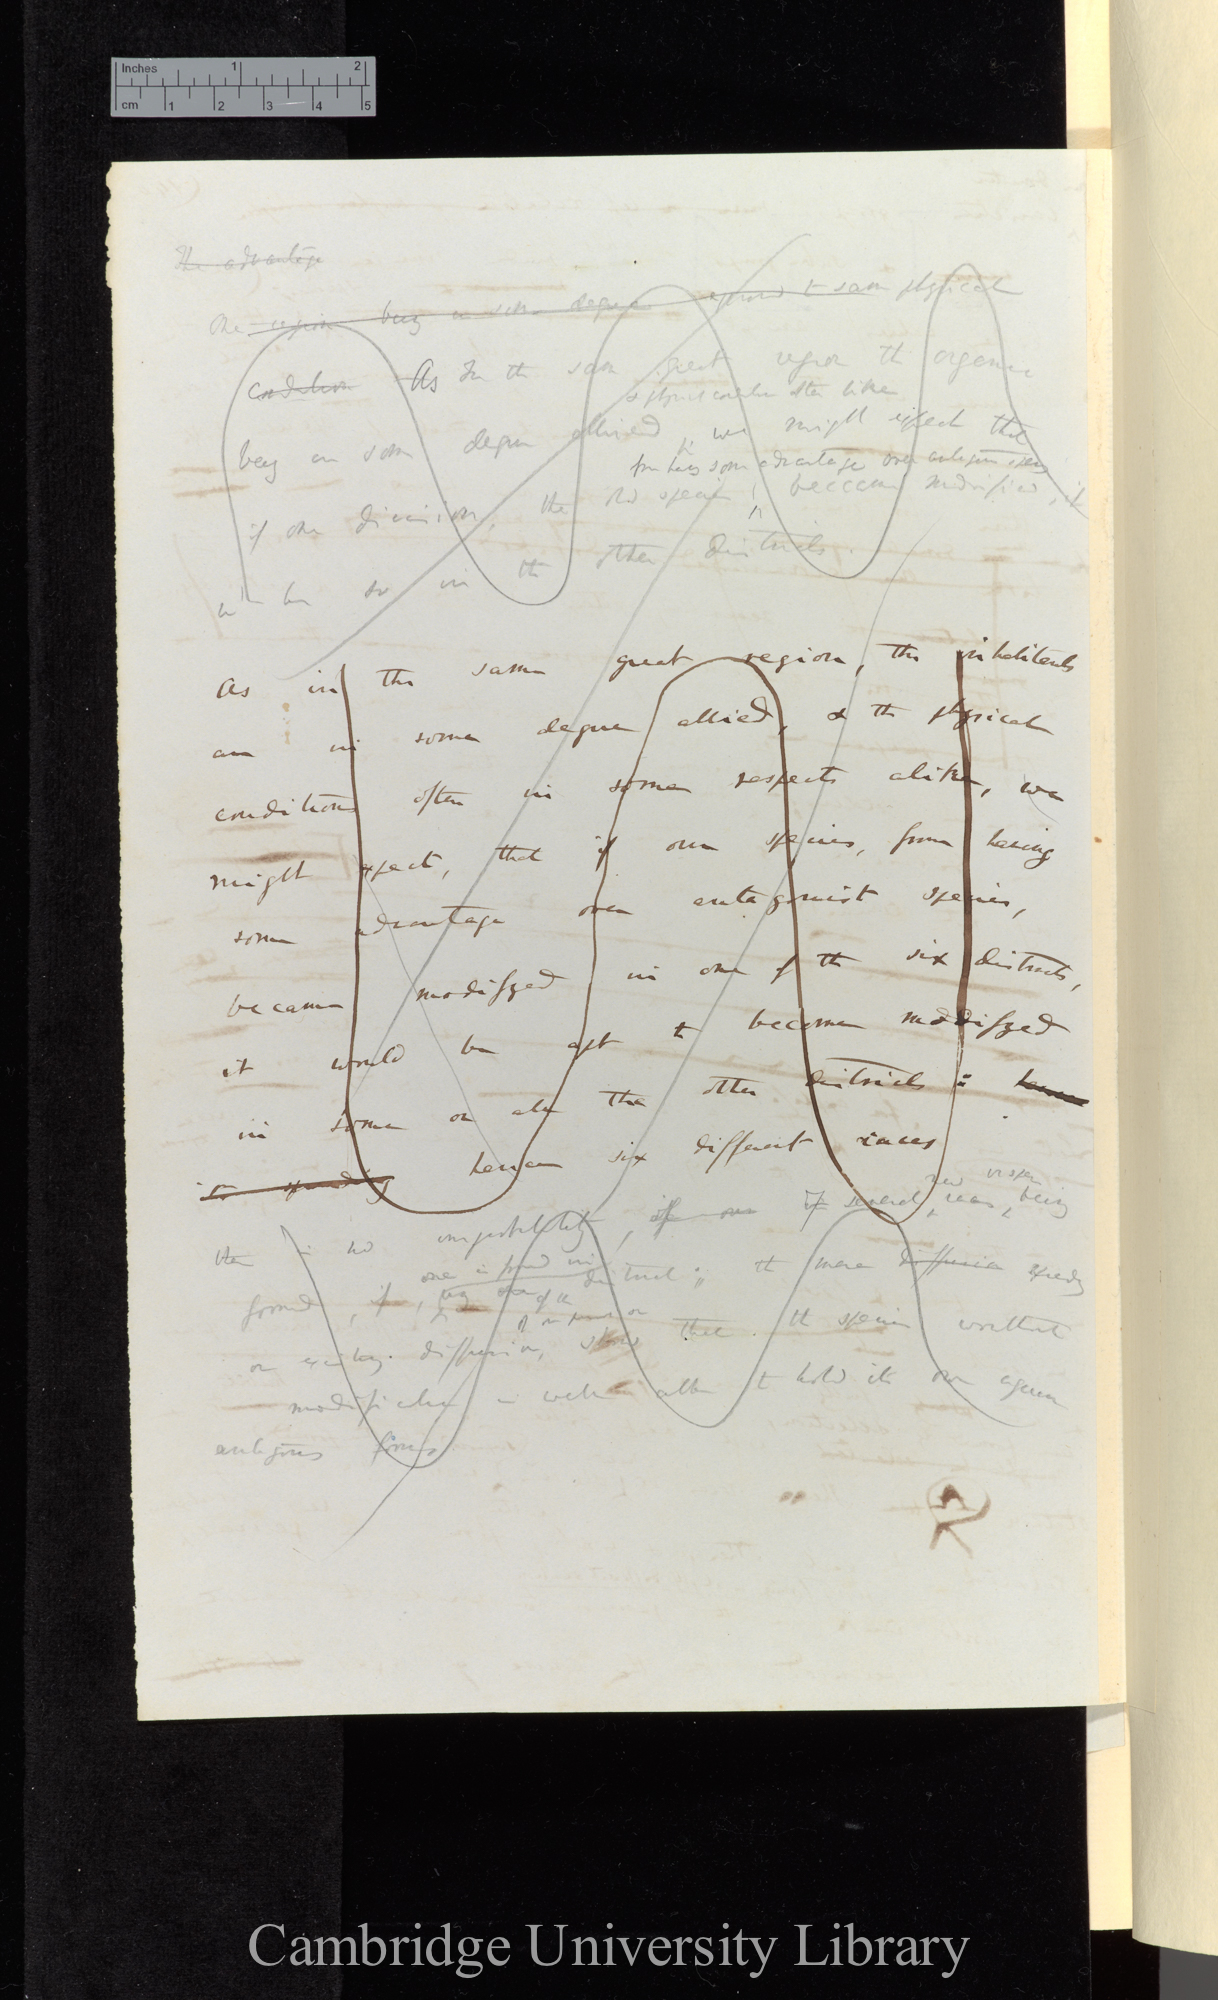 Inches 1 2
cm 1 2 3 4 5
The advantage
one region being in some degree exposed to same physical
condition As In the same great region the organic
& physical condition often like
being in some degree allied, we might expect that
from having some advantage over antagonist species
if one division, the old species became modified, it
so in the other districts.
As in the same great region, the inhabitants
are in some degree allied, & the physical
conditions often in some respects alike, we
might expect, that if one species, from having
some advantage over antagonist species,
became modified in one of the six districts,
it would be apt to become modified
in some or all the other districts: hence
its spreading hence six different races
new
there is no improbability, if one if several races, being
one is found in
formed, if, district; the mere diffusion
or diffusion, shows that the species without
modification is well able to hold its own against
antagonist forms
Cambridge University Library